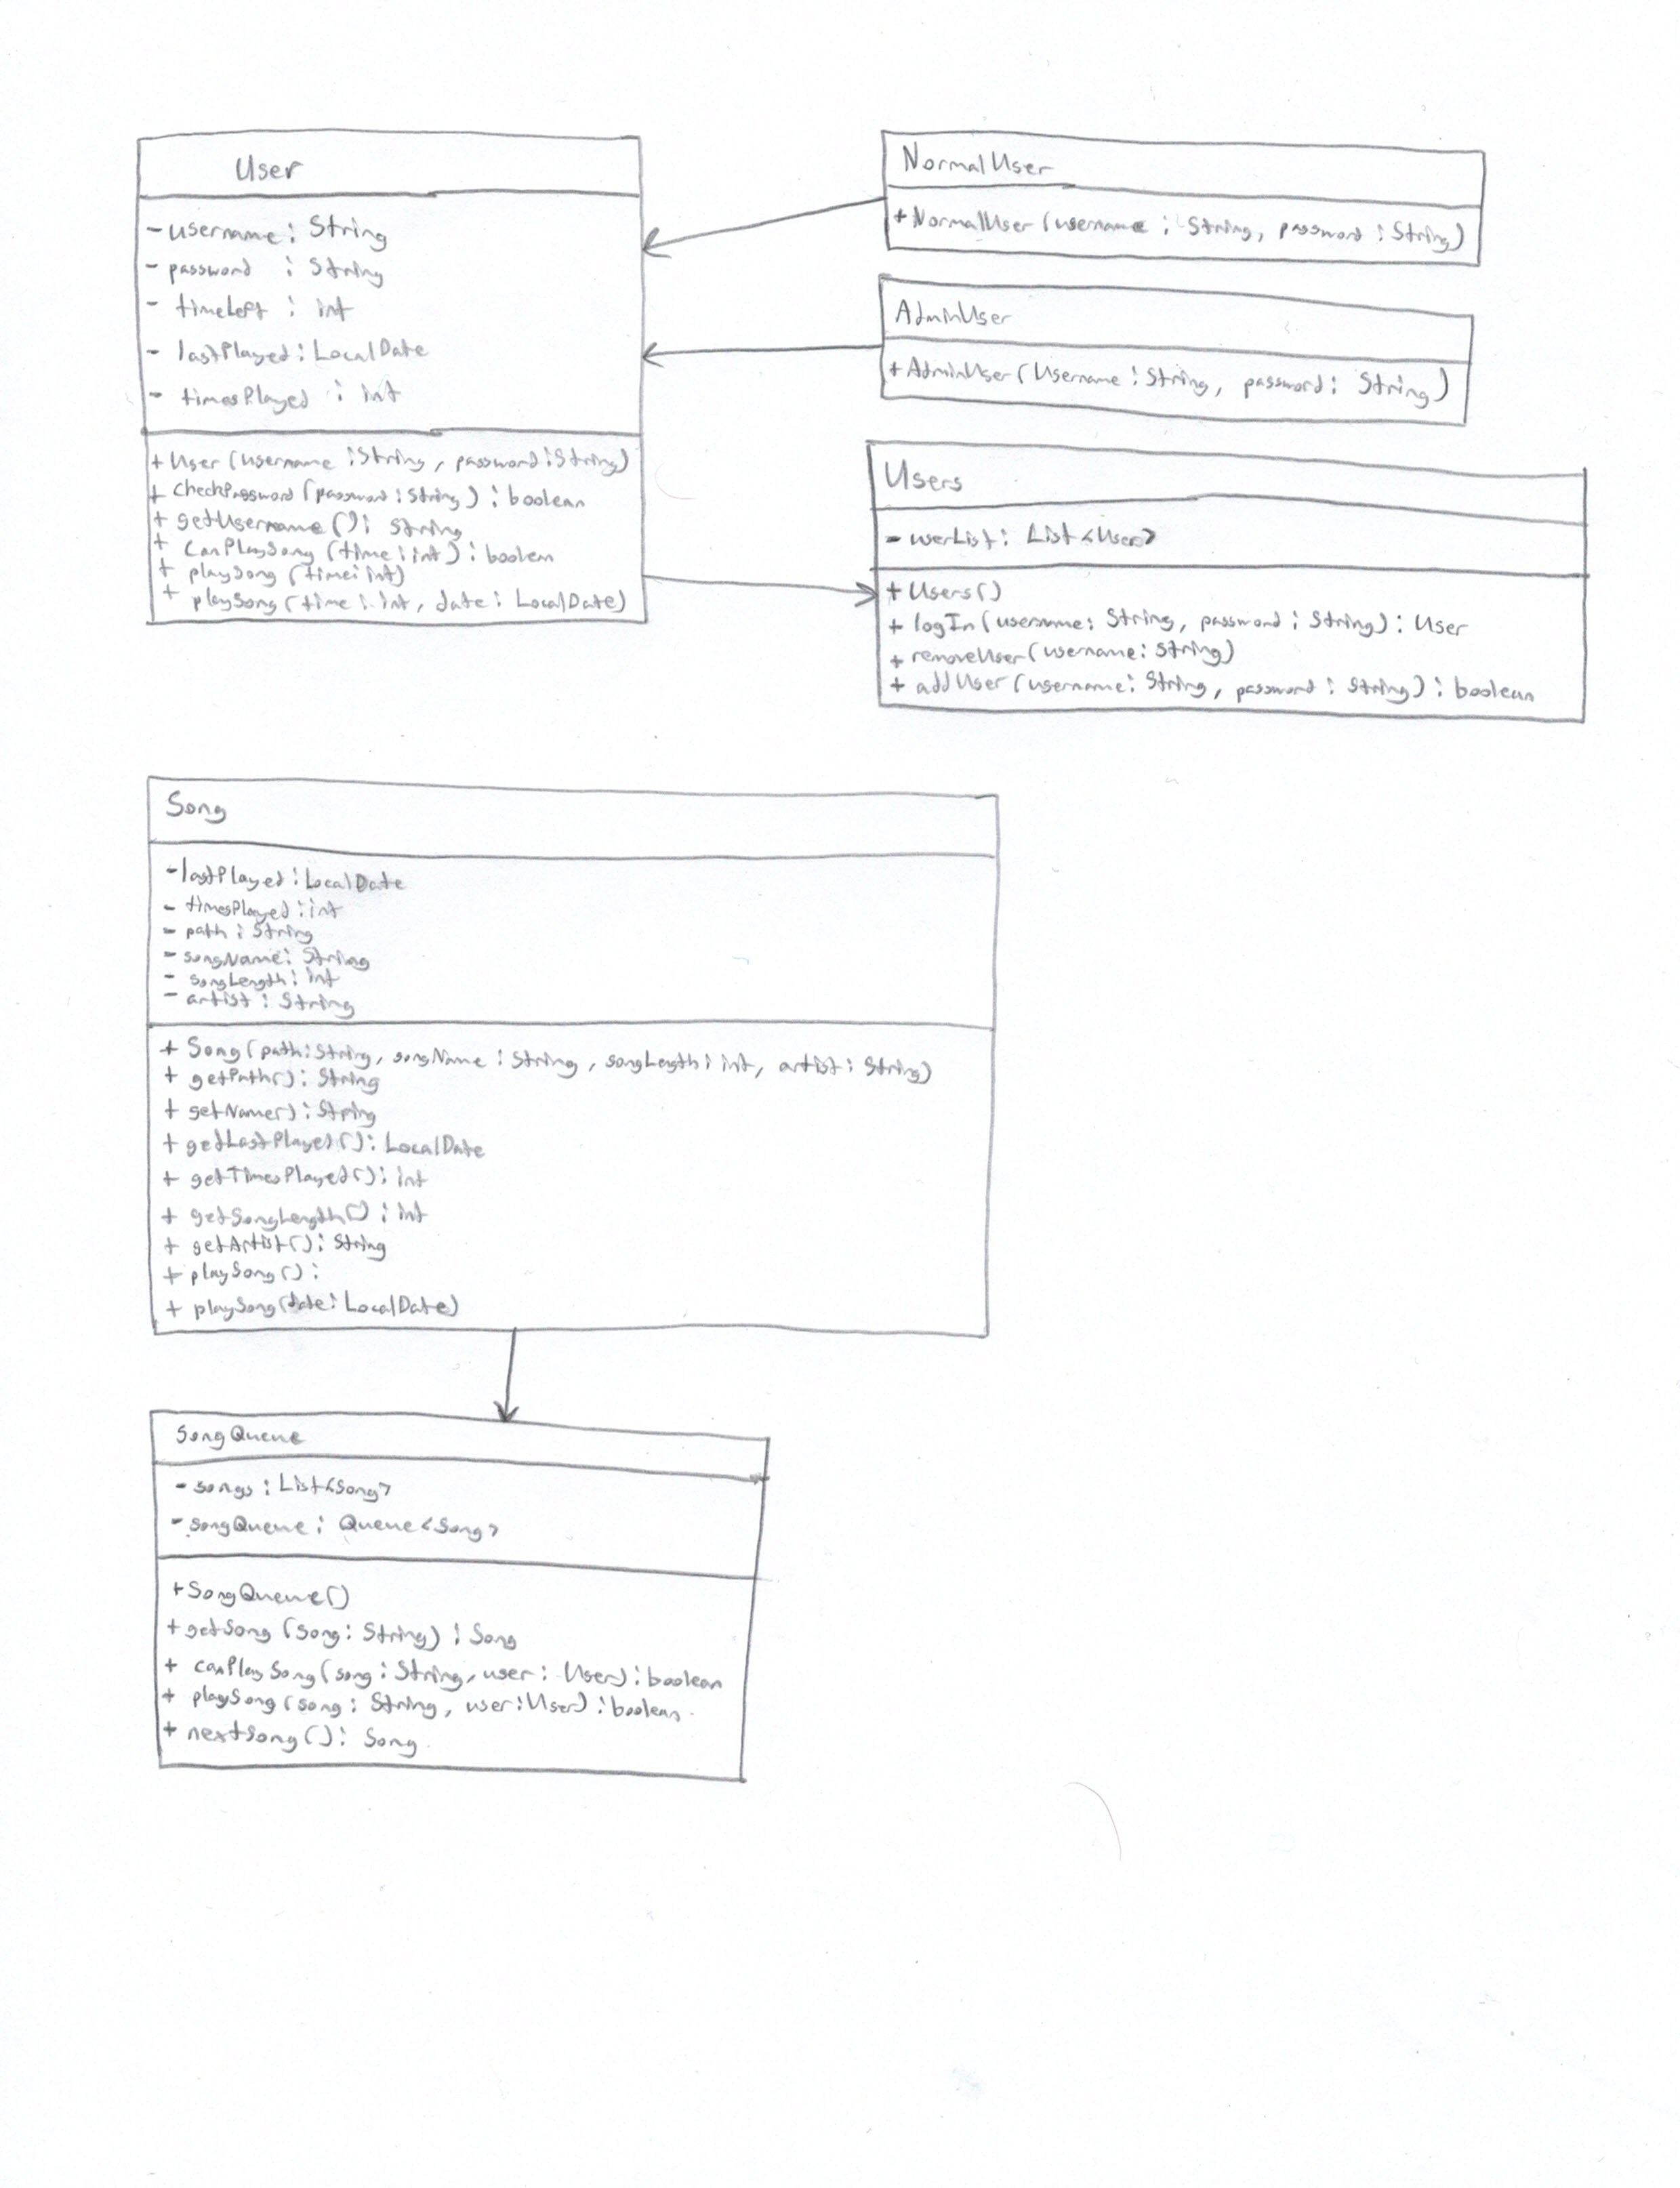 User
- username : String
- password : String
- timeLeft : int
- lastPlayed : LocalDate
- timesPlayed : int
+ User (username : String, password : String)
+ checkPassword (password : String) : boolean
+ getUsername () : String
+ canPlaySong (time : int) : boolean
+ playSong (time : int)
+ playSong (time : int, date : LocalDate)
NormalUser
+ NormalUser (username : String, password : String)
AdminUser
+ AdminUser (Username : String, password : String)
Users
- userList : List<User>
+ Users()
+ logIn (username : String, password : String) : User
+ removeUser (username : String)
+ addUser (username : String, password : String) : boolean
Song
- lastPlayed : LocalDate
- timesPlayed : int
- path : String
- songName : String
- songLength : int
- artist : String
+ Song (path : String, songName : String, songLength : int, artist : String)
+ getPath() : String
+ getName() : String
+ getLastPlayed() : LocalDate
+ getTimesPlayed() : int
+ getSongLength() : int
+ getArtist() : String
+ playSong() :
+ playSong(date : LocalDate)
SongQueue
- songs : List<Song>
- songQueue : Queue<Song>
+ SongQueue()
+ getSong (song : String) : Song
+ canPlaySong (song : String, user : User) : boolean
+ playSong (song : String, user : User) : boolean
+ nextSong () : Song